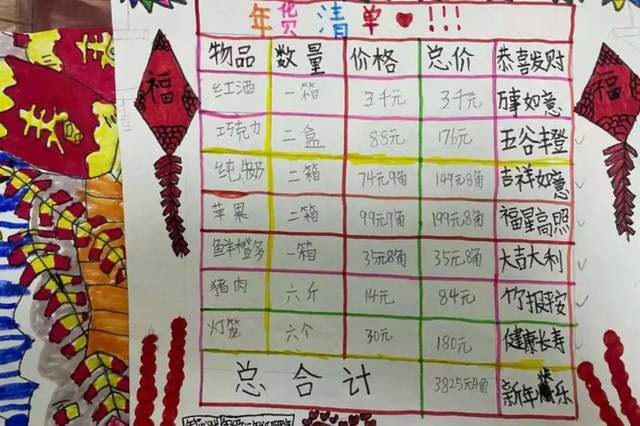 年货清单!!!
福
福
物品 数量 价格 总价 恭喜发财
红酒 一箱 3千元 3千元 万事如意
巧克力 二盒 88元 176元 五谷丰登
纯牛奶 二箱 74元9角 149元8角 吉祥如意
苹果 二箱 99元9角 199元8角 福星高照
鲜橙多 一箱 35元8角 35元8角 大吉大利
猪肉 六斤 14元 84元 竹报平安
灯笼 六个 30元 180元 健康长寿
总合计 3825元4角 新年快乐